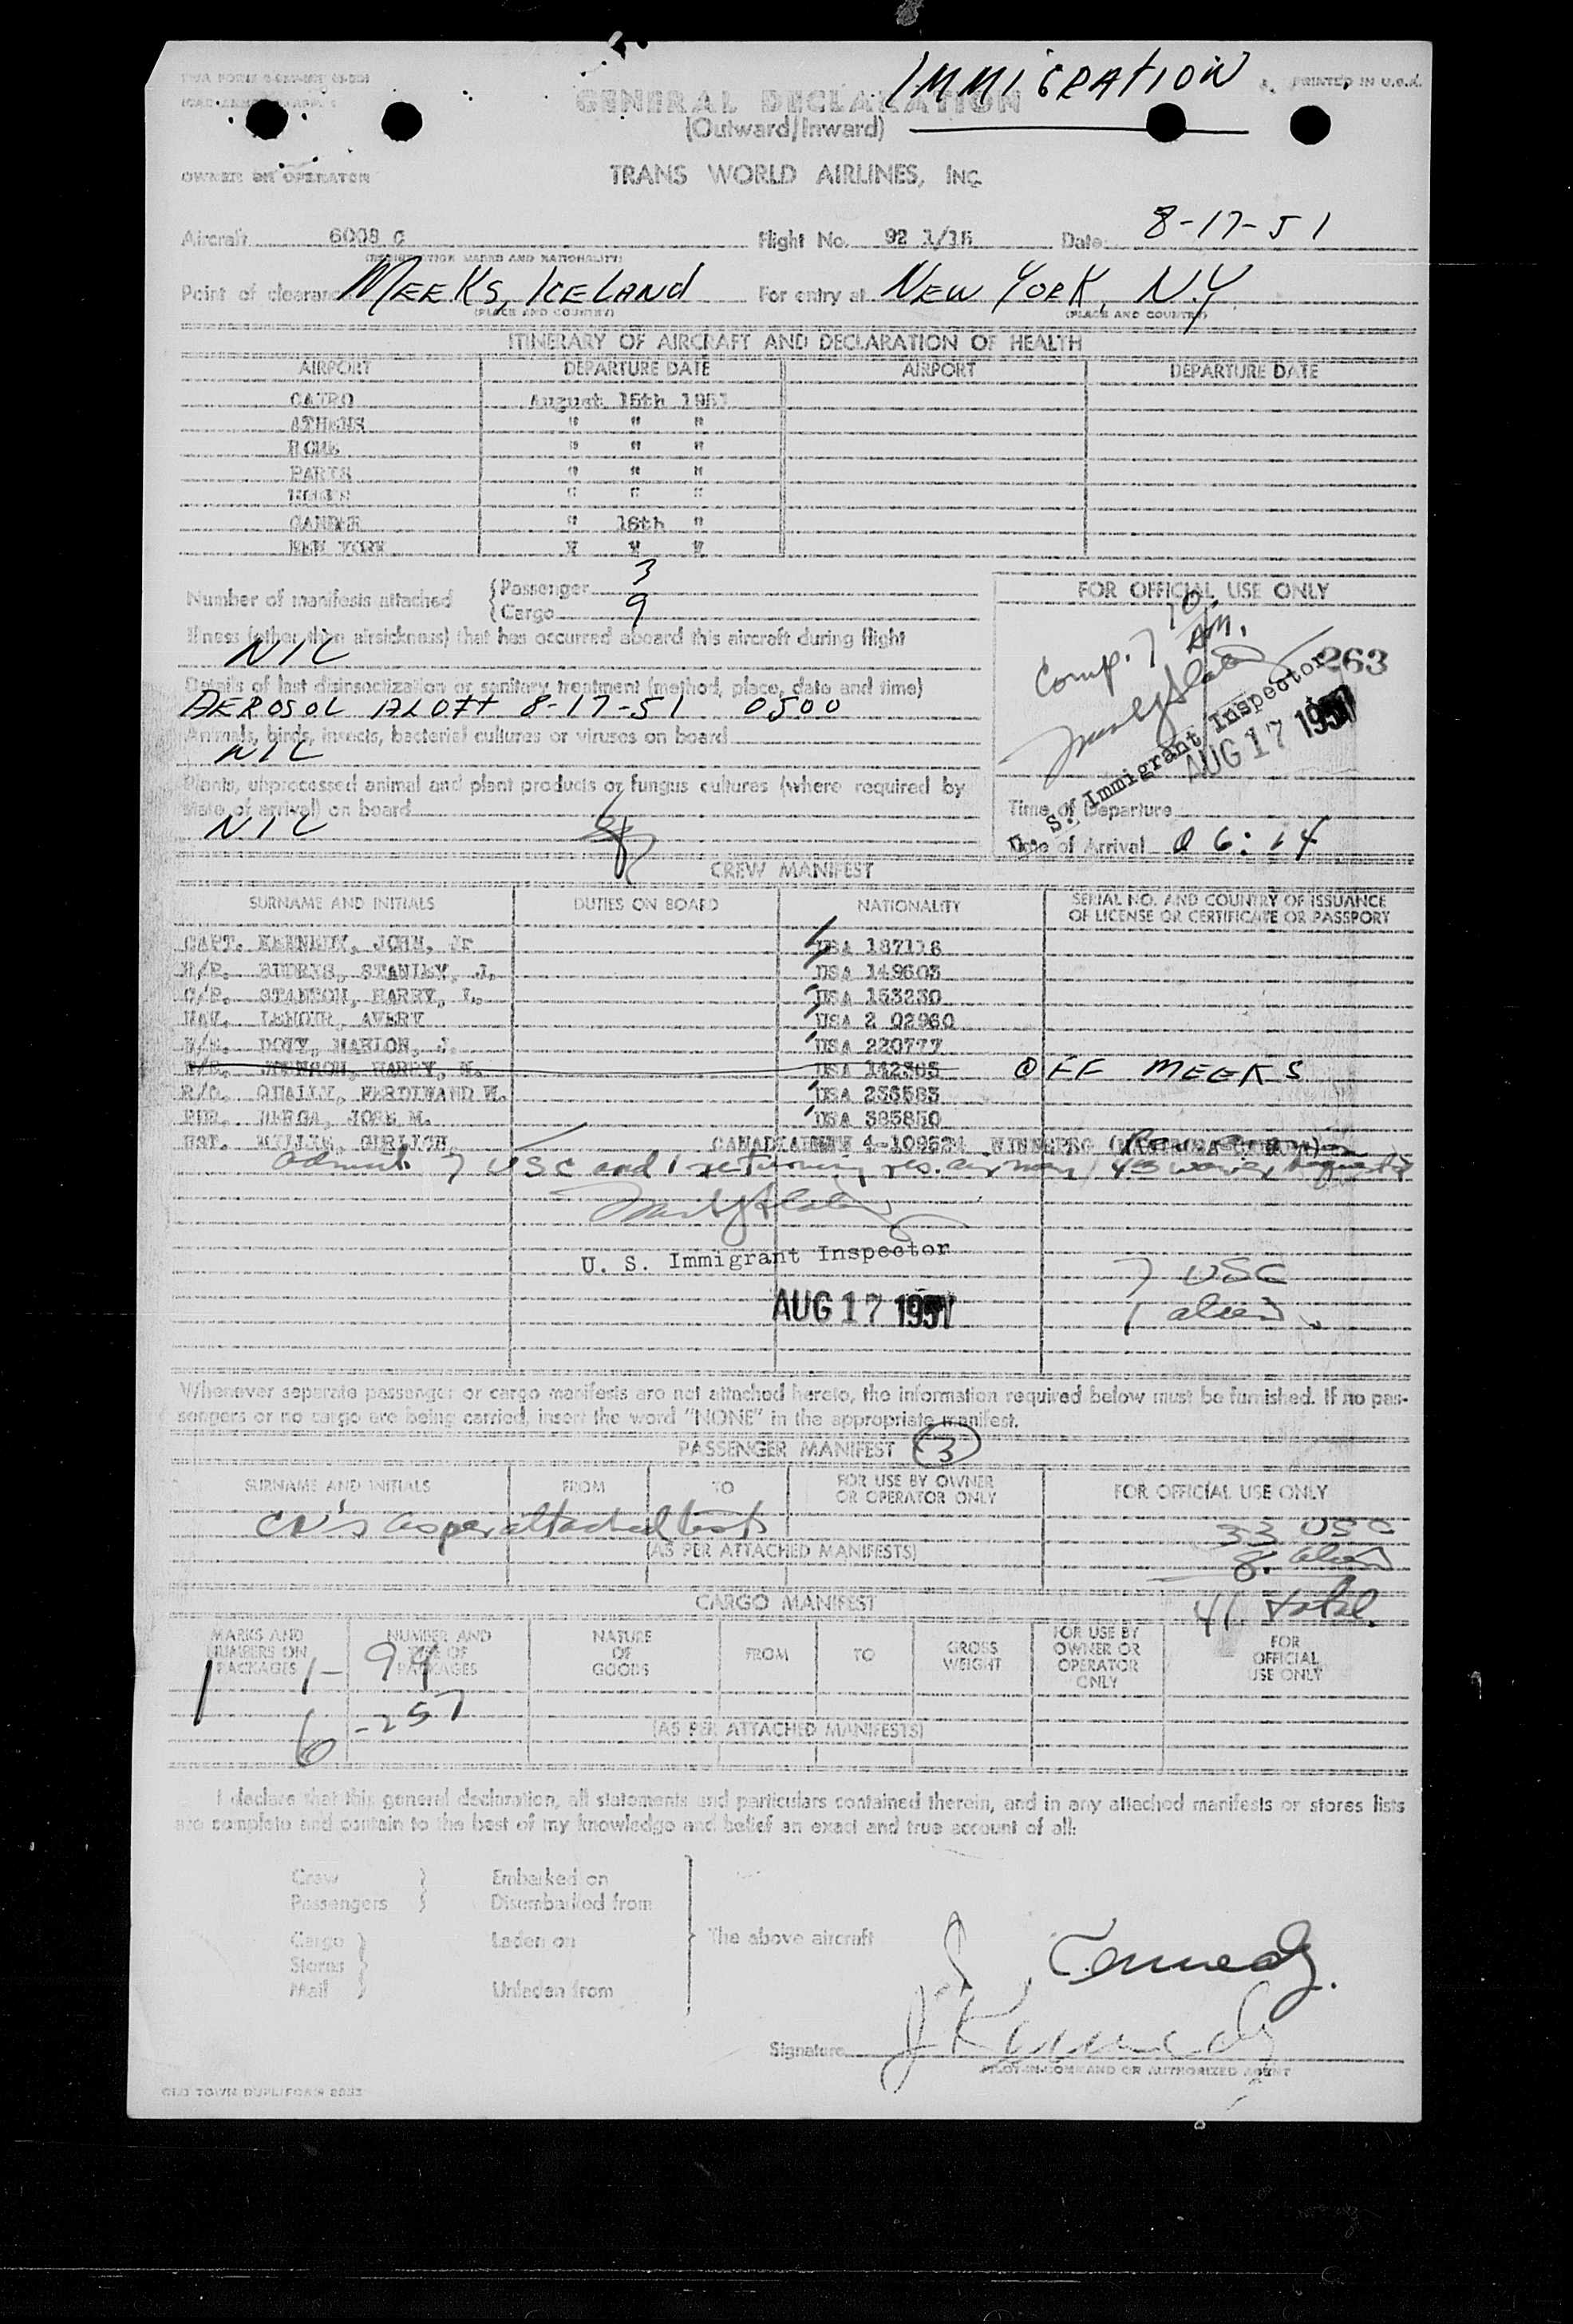 IMMIGRATION
PRINTED IN U.S.A.
GENERAL DECLARATION
(Outward/Inward)
OWNER OR OPERATOR TRANS WORLD AIRLINES, INC.
Aircraft 6008 C Flight No. 92 1/15 Date 8-17-51
(REGISTRATION MARKS AND NATIONALITY)
Point of clearance MEEKS, ICELAND For entry at NEW YORK, N.Y.
(PLACE AND COUNTRY) (PLACE AND COUNTRY)
ITINERARY OF AIRCRAFT AND DECLARATION OF HEALTH
AIRPORT DEPARTURE DATE AIRPORT DEPARTURE DATE
CAIRO August 15th 1951
ATHENS " " "
ROME " " "
PARIS " " "
" " "
GANDER " 16th "
NEW YORK " " "
Number of manifests attached
Passenger 3
Cargo 9
Illness (other than airsickness) that has occurred aboard this aircraft during flight
NIL
Details of last disinsectization or sanitary treatment (method, place, date and time)
AEROSOL ALOFT 8-17-51 0500
Animals, birds, insects, bacterial cultures or viruses on board
NIL
Plants, unprocessed animal and plant products or fungus cultures (where required by
state of arrival) on board
NIL
FOR OFFICIAL USE ONLY
Comp. 7 10. AM.
263
U. S. Immigrant Inspector
AUG 17 1951
Time of Departure
Time of Arrival 06:14
CREW MANIFEST
SURNAME AND INITIALS DUTIES ON BOARD NATIONALITY SERIAL NO. AND COUNTRY OF ISSUANCE
OF LICENSE OR CERTIFICATE OR PASSPORT
CAPT. KENNEDY, JOHN, Jr USA 187118
STANLEY, J. USA 149603
STANTON, HARRY, L. USA 153230
NAV. LENOIR, AVERY USA 2 02960
DOTY, MARLON, J. USA 220777
JOHNSON, HARRY, USA 142305 OFF MEEKS
R/O. QUALLY, FERDINAND USA 236583
PUR. BERGA, JOSE M. USA 385850
CANADIAN 4-109524 WINNIPEG
admit. 7 USC and 1 returning res.
U. S. Immigrant Inspector
AUG 17 1951
7 USC
1 alien
Whenever separate passenger or cargo manifests are not attached hereto, the information required below must be furnished. If no pas-
sengers or no cargo are being carried, insert the word "NONE" in the appropriate manifest.
PASSENGER MANIFEST 3
SURNAME AND INITIALS FROM TO FOR USE BY OWNER
OR OPERATOR ONLY FOR OFFICIAL USE ONLY
as per attached lists
33 USC
(AS PER ATTACHED MANIFESTS)
8. alien
41 total.
CARGO MANIFEST
MARKS AND
NUMBERS ON
PACKAGES NUMBER AND
TYPE OF
PACKAGES NATURE
OF
GOODS FROM TO GROSS
WEIGHT FOR USE BY
OWNER OR
OPERATOR
ONLY FOR
OFFICIAL
USE ONLY
1- 99
6 -257
(AS PER ATTACHED MANIFESTS)
I declare that this general declaration, all statements and particulars contained therein, and in any attached manifests or stores lists
are complete and contain to the best of my knowledge and belief an exact and true account of all:
Crew Embarked on
Passengers Disembarked from
Cargo Laden on
Stores
Mail Unladen from
The above aircraft
J. Kennedy.
Signature J Kennedy
PILOT-IN-COMMAND OR AUTHORIZED AGENT
OLD TOWN DUPLIFORM